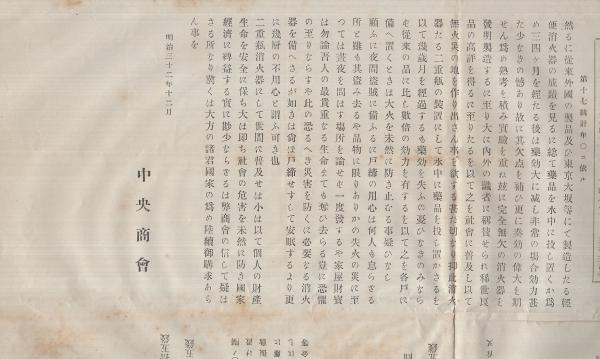 第十七銅計年〇ニ依ル
然るに從來外國の製品及び東京大坂等にて製造したる輕
便消火器の成蹟を見るに總て藥品を水中に投し置くか爲
め三四ヶ月を經たる後は藥効大に減し非常の場合効力甚
た少なきの憾あり故に其欠点を補ひ更に奏効の偉大を期
せん爲め熟考を積み實驗を重ね玆に完全無欠の消火器を
發明製造するに至り大に内外の識者に稱賛せられ稀世良
品の高評を得るに至りたるを以て之を社會に普及し以て
無火災の地を作り出さん事を欲する甚た切なり抑此消火
器たる二重瓶の裝置にして水中に藥品を投し置かさるを
以て幾歲月を經過するも藥効を失ふの憂ひなきのみなら
す從來の品に比し數倍の効力を有するを以て之を各戶に
備へ置くときは大火を未然に防き止むる事疑ひなし
顧ふに夜間盜賊に備ふるに戶締の用心は何人も怠らさる
所と雖も其盜み去るや品物に限りありかの失火の災に至
つては晝夜を問はす塲所を論せす一度發するや家屋財寶
は勿論吾人の最貴重なる生命までも奪ひ去らる豈に恐懼
の至りならすや此の恐るへき災害を防くに必要なる消火
器を備へさるが如きは尙ほ戶締せすして安眠するより更
に幾層の不用心と謂ふ可き也
二重瓶消火器にして世間に普及せは小は以て個人の財產
生命を安全に保ち大は卽ち社會の危害を未然に防き國家
經濟に裨益する實に尠少ならさるは弊商會の信して疑は
さる所なり冀くは大方の諸君國家の爲め陸續御購求あら
ん事を
明治三十二年十二月
中央商會